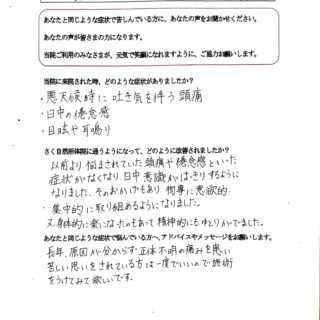 あなたと同じような症状で苦しんでいる方に、あなたの声をお聞かせください。
あなたの声が皆さまの力になります。
当院ご利用のみなさまが、元気で笑顔になれますように、ご協力お願いします。
当院に来院された時、どのような症状がありましたか?
・悪天候時に吐き気を伴う頭痛
・日中の倦怠感
・目眩や耳鳴り
さく自然形体院に通うようになって、どのように改善されましたか?
以前より悩まされていた頭痛や倦怠感といった
症状がなくなり、日中意識がはっきりするように
なりました。そのおかげもあり、物事に意欲的、
集中的に取り組めるようになりました。
又、身体的に楽になったのもあって精神的にもゆとりがでました。
あなたと同じような症状で悩んでいる方へ、アドバイスやメッセージをお願いします。
長年、原因が分からず正体不明の痛みを患い
苦しい思いをされている方は一度でいいので施術
をうけてみて欲しいです。